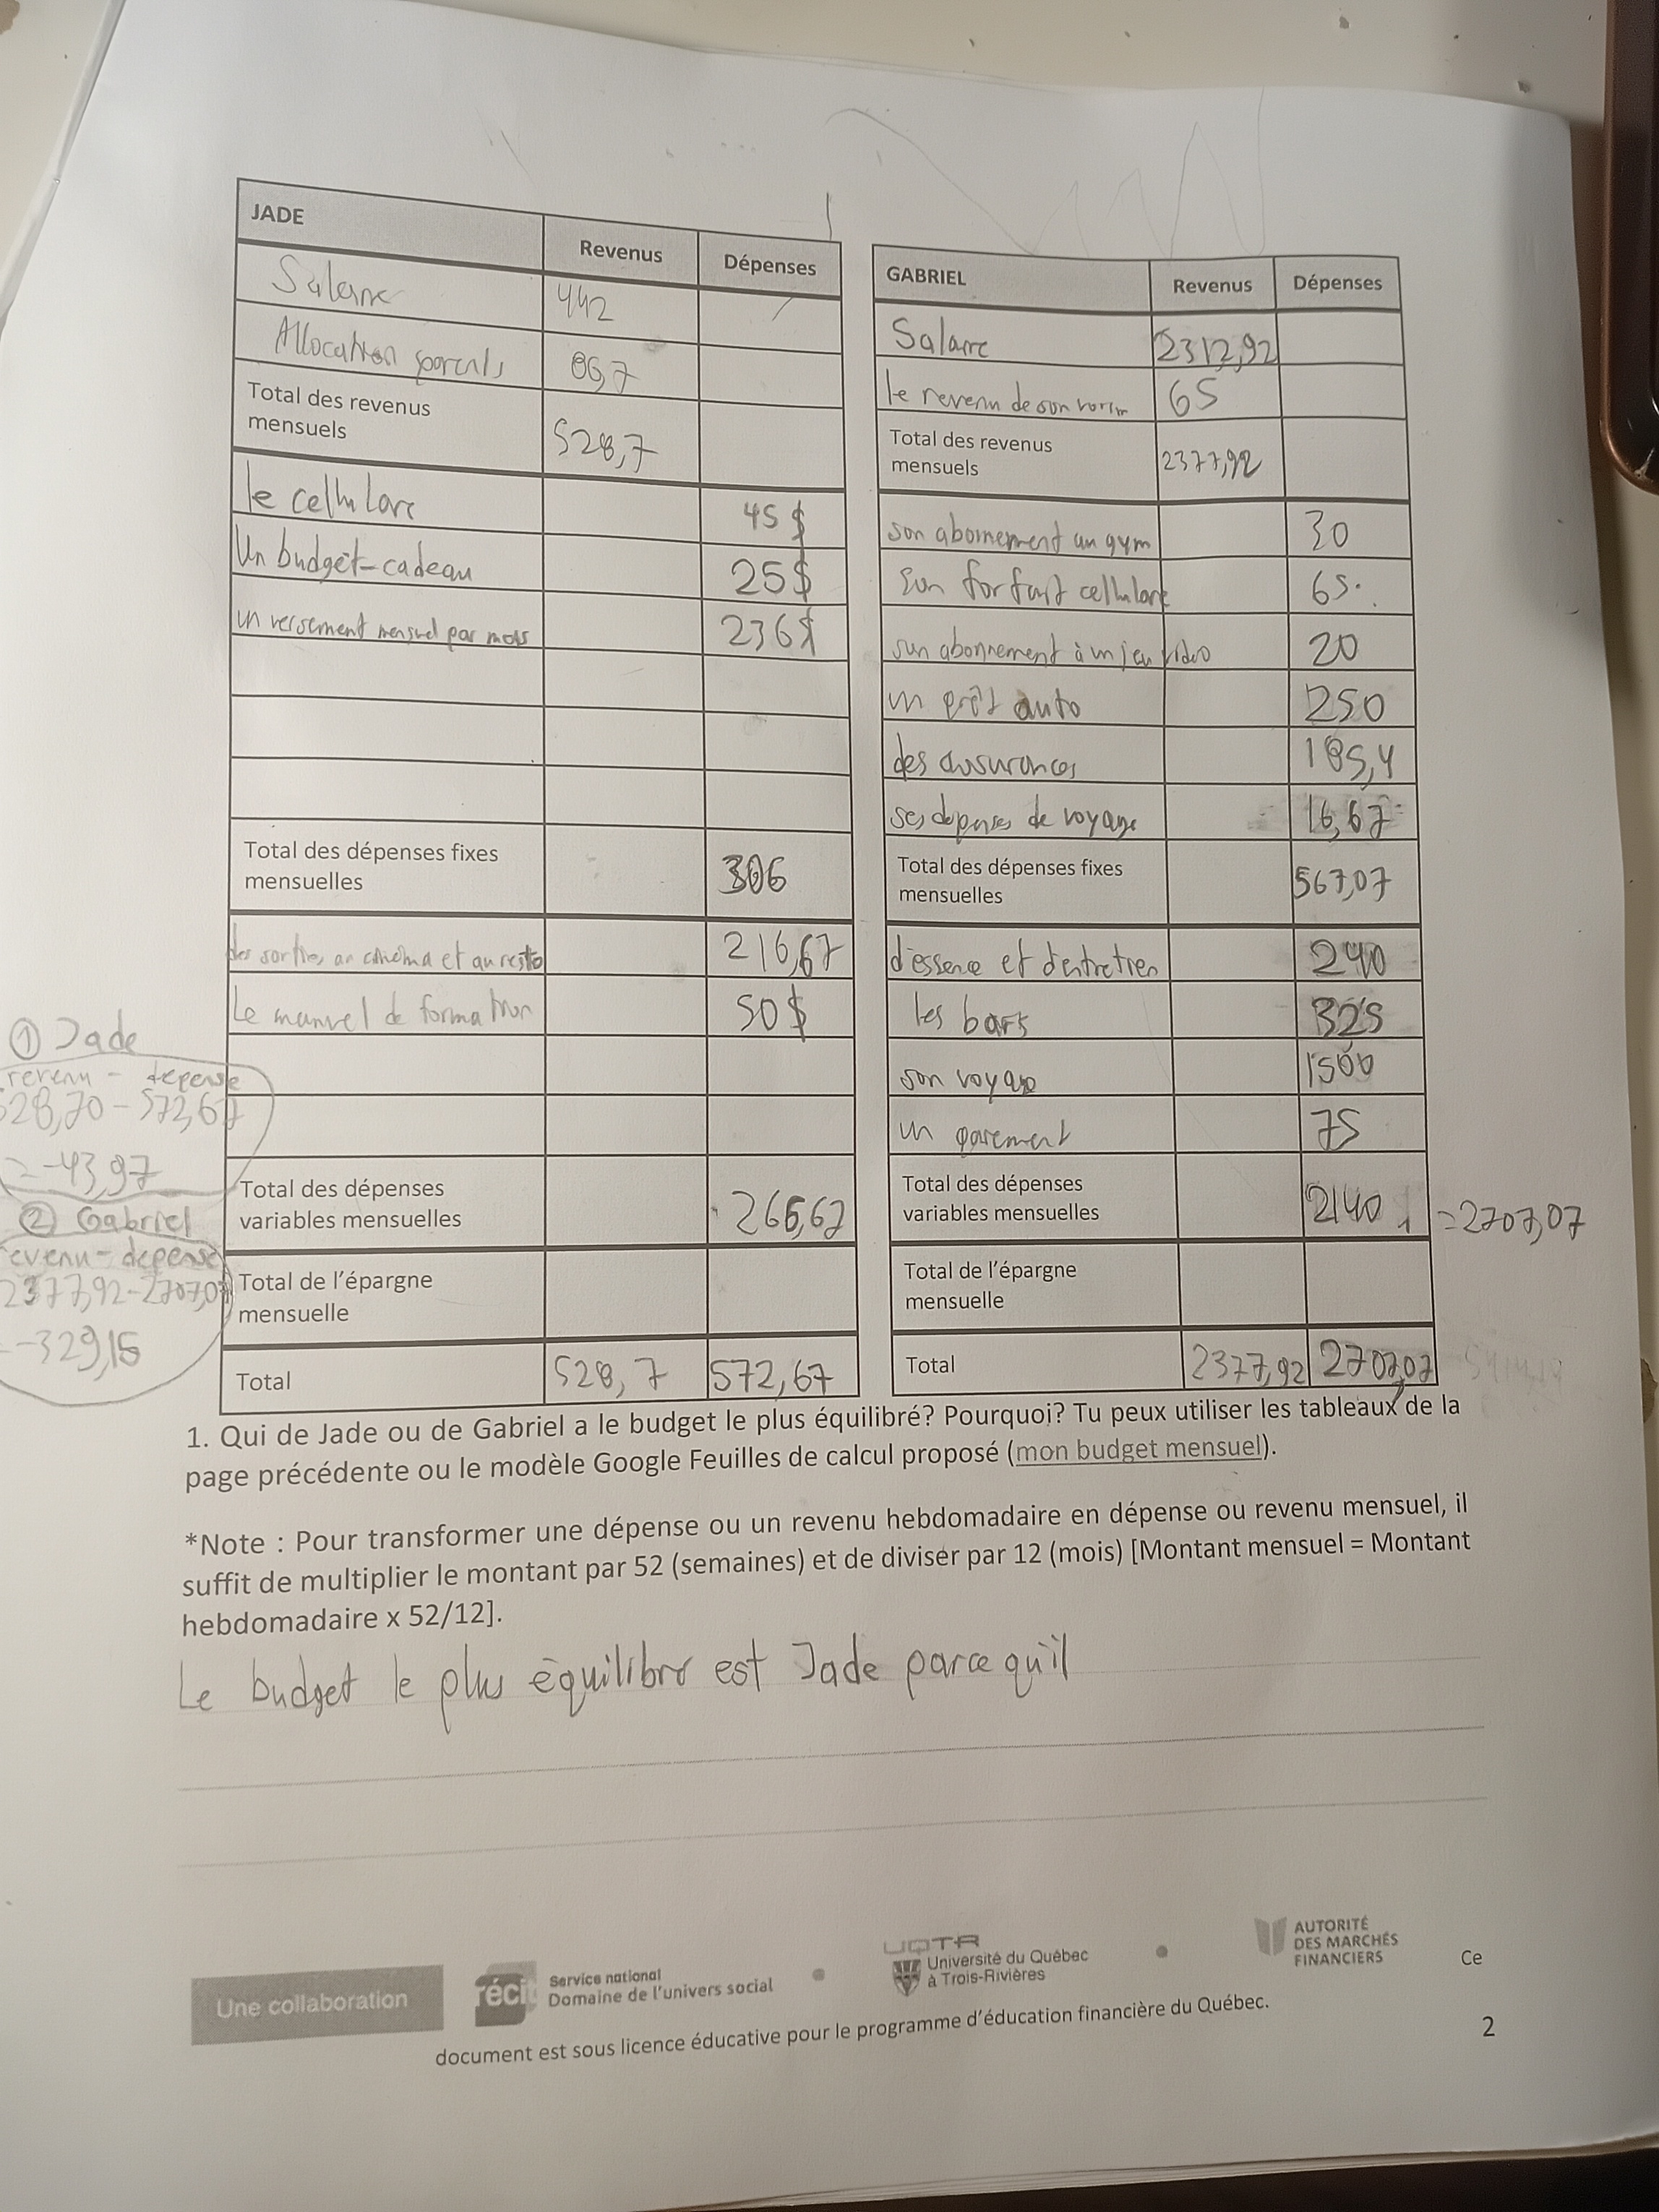 JADE
Revenus
Dépenses
Salaire
442
Allocation
86,7
Total des revenus
mensuels
528,7
le cellulare
45 $
Un budget-cadeau
25$
un versement mensuel par mois
236$
Total des dépenses fixes
mensuelles
306
des sorties au cinéma et au resto
216,67
Le manuel de formation
50$
Total des dépenses
variables mensuelles
266,67
Total de l'épargne
mensuelle
Total
528,7
572,67
GABRIEL
Revenus
Dépenses
Salaire
2312,92
le revenu de son
65
Total des revenus
mensuels
2377,92
son abonnement au gym
30
Son forfait cellulare
65
son abonnement à un jeu video
20
un prêt auto
250
des assurances
185,4
ses depenses de voyage
16,67
Total des dépenses fixes
mensuelles
567,07
d'essence et d'entretien
240
les bars
325
son voyage
1500
un
75
Total des dépenses
variables mensuelles
2140
=2707,07
Total de l'épargne
mensuelle
Total
2377,92
2707,07
① Jade
revenu - depense
528,70 - 572,67
= -43,97
② Gabriel
revenu - depense
2377,92 - 2707,07
-329,15
1. Qui de Jade ou de Gabriel a le budget le plus équilibré? Pourquoi? Tu peux utiliser les tableaux de la
page précédente ou le modèle Google Feuilles de calcul proposé (mon budget mensuel).
*Note : Pour transformer une dépense ou un revenu hebdomadaire en dépense ou revenu mensuel, il
suffit de multiplier le montant par 52 (semaines) et de diviser par 12 (mois) [Montant mensuel = Montant
hebdomadaire x 52/12].
Le budget le plus équilibré est Jade parce qu'il
Une collaboration
récit
Service national
Domaine de l'univers social
UQTR
Université du Québec
à Trois-Rivières
AUTORITÉ
DES MARCHÉS
FINANCIERS
Ce
document est sous licence éducative pour le programme d'éducation financière du Québec.
2